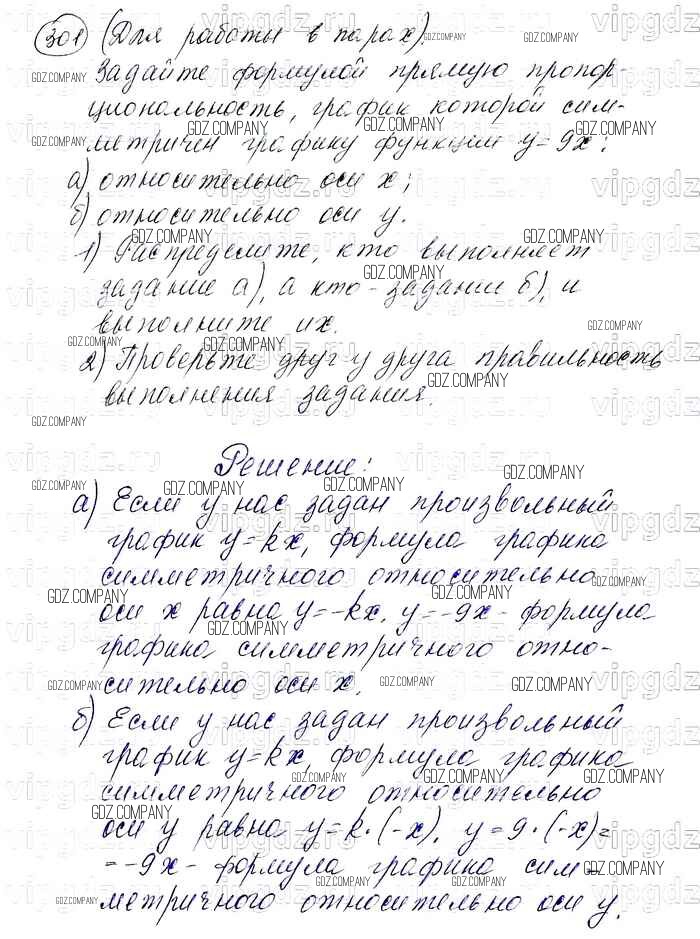 301 (Для работы в парах).
Задайте формулой прямую пропор-
циональность, график которой сим-
метричен графику функции y=9x:
а) относительно оси x;
б) относительно оси y.
1) Распределите, кто выполняет
задание а), а кто - задание б), и
выполните их.
2) Проверьте друг у друга правильность
выполнения задания.
Решение:
а) Если у нас задан произвольный
график y=kx, формула графика
симметричного относительно
оси x равна y=-kx, y=-9x - формула
графика симметричного отно-
сительно оси x.
б) Если у нас задан произвольный
график y=kx, формула графика
симметричного относительно
оси y равна y=k·(-x), y=9·(-x)=
=-9x - формула графика сим-
метричного относительно оси y.